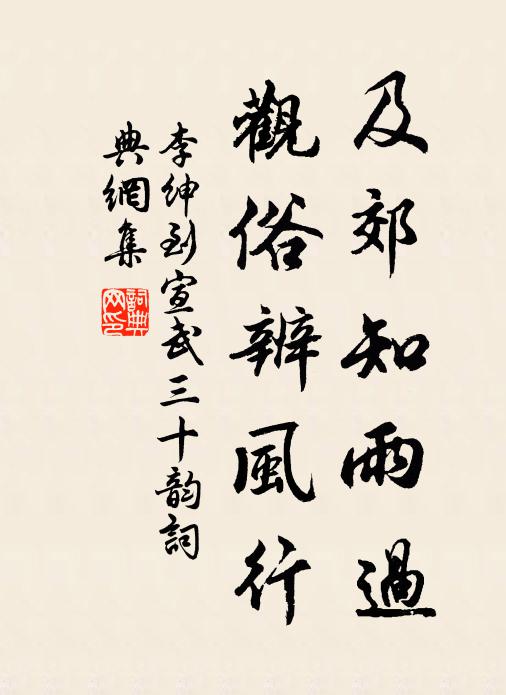 及郊知雨過
觀俗辨風行
李紳到宣武三十韵詞
典網集
詞典網印